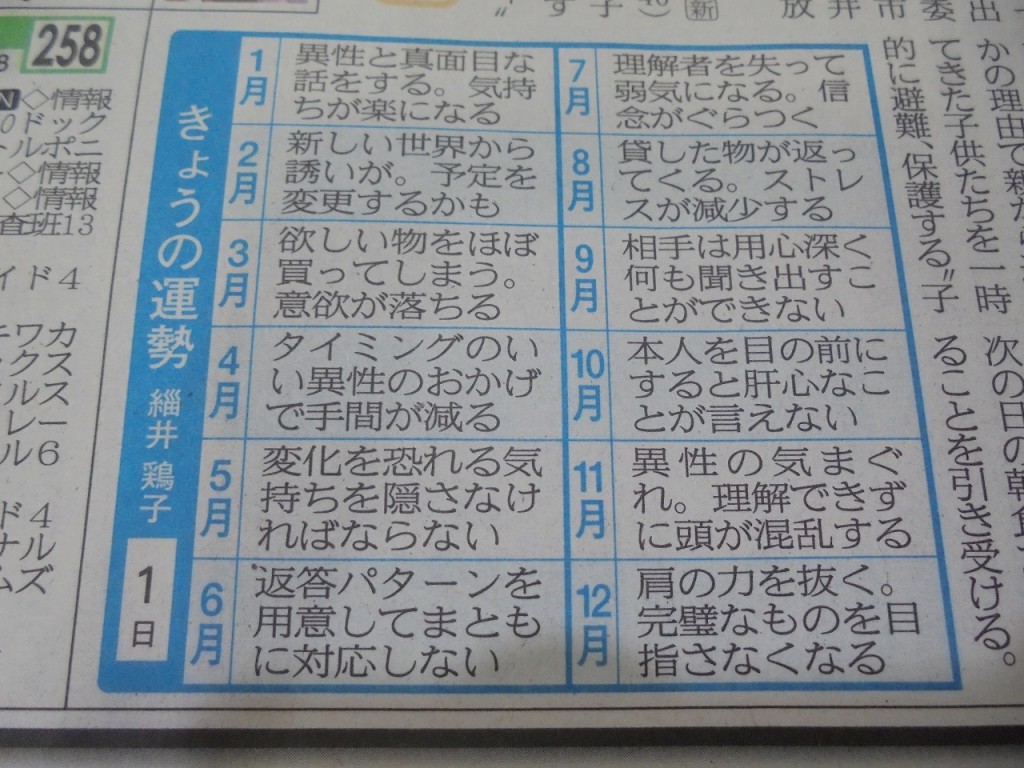 258
◇情報
ドック
ルポニ
◇情報
◇情報
査班13
イド4
キワカ
ックス
レー
ル6
ド4
ナル
ムズ
きょうの運勢
緇井 鶏子
1日
1月
異性と真面目な
話をする。気持
ちが楽になる
2月
新しい世界から
誘いが。予定を
変更するかも
3月
欲しい物をほぼ
買ってしまう。
意欲が落ちる
4月
タイミングのい
い異性のおかげ
で手間が減る
5月
変化を恐れる気
持ちを隠さなけ
ればならない
6月
返答パターンを
用意してまとも
に対応しない
7月
理解者を失って
弱気になる。信
念がぐらつく
8月
貸した物が返っ
てくる。ストレ
スが減少する
9月
相手は用心深く
何も聞き出すこ
とができない
10月
本人を目の前に
すると肝心なこ
とが言えない
11月
異性の気まぐ
れ。理解できず
に頭が混乱する
12月
肩の力を抜く。
完璧なものを目
指さなくなる
出
委
市
井
放
新
子
す
かの理由で新た
てきた子供たちを一時
的に避難、保護する〟子
次の日の朝食
ることを引き受ける。